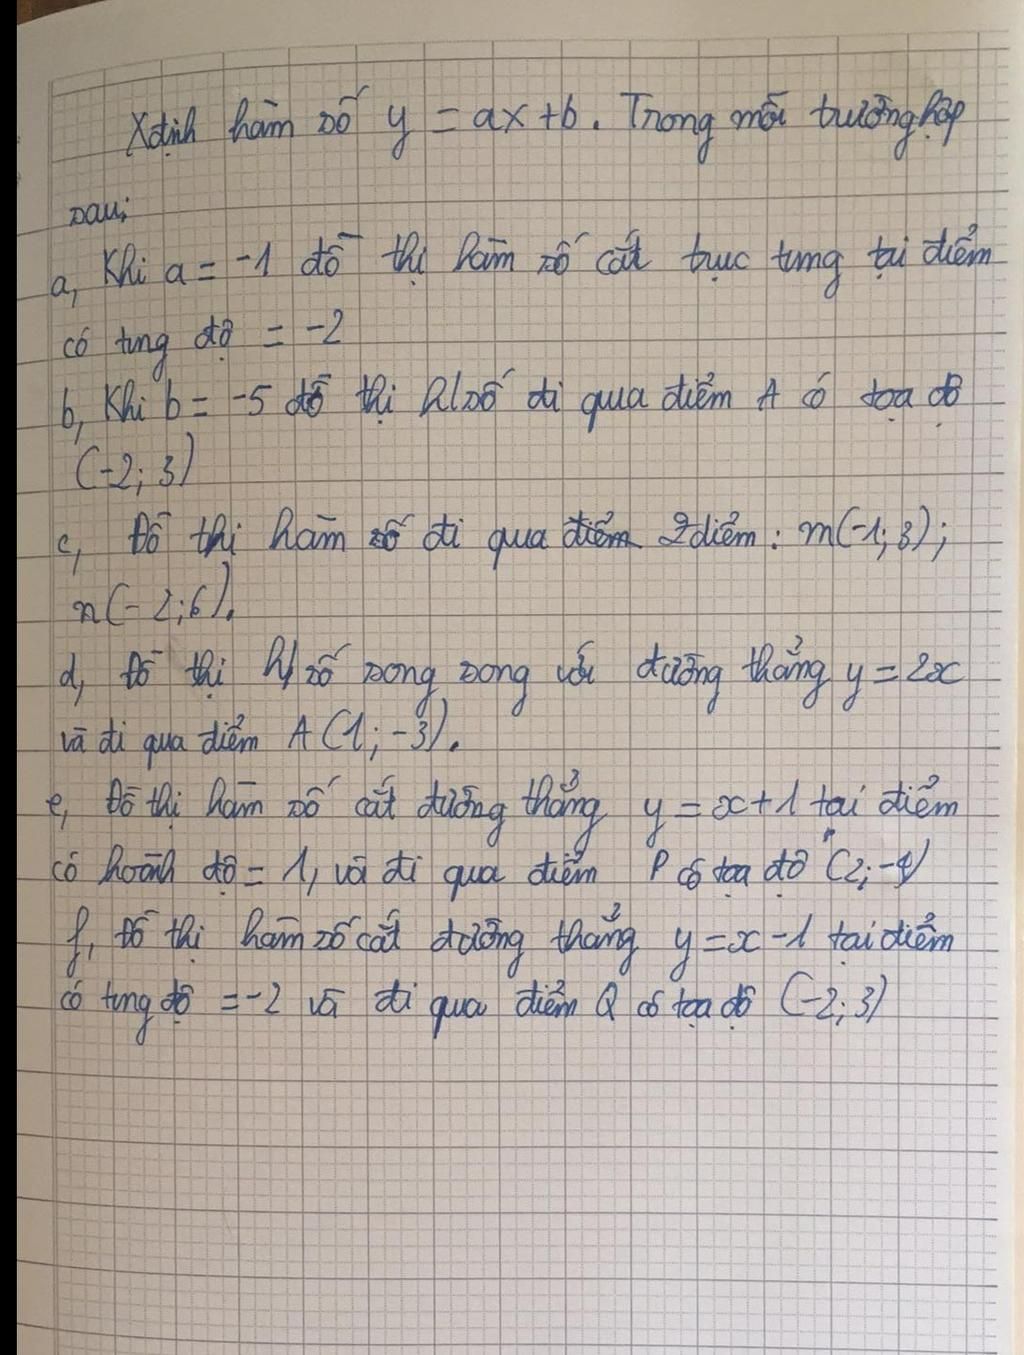 Xđịnh hàm số y = ax+b. Trong mỗi trường hợp
sau:
a, Khi a = -1 đồ thị hàm số cắt trục tung tại điểm
có tung độ = -2
b, Khi b = -5 đồ thị h/số đi qua điểm A có tọa độ
(-2; 3)
c, Đồ thị hàm số đi qua điểm 2 điểm: m(-1; 3);
n(-2;6).
d, Đồ thị h/số song song với đường thẳng y = 2x
và đi qua điểm A(1; -3).
e, Đồ thị hàm số cắt đường thẳng y = x+1 tại điểm
có hoành độ = 1, và đi qua điểm P có tọa độ
f, Đồ thị hàm số cắt đường thẳng y = x -1 tại điểm
có tung độ = -2 và đi qua điểm Q có tọa độ (-2; 3)